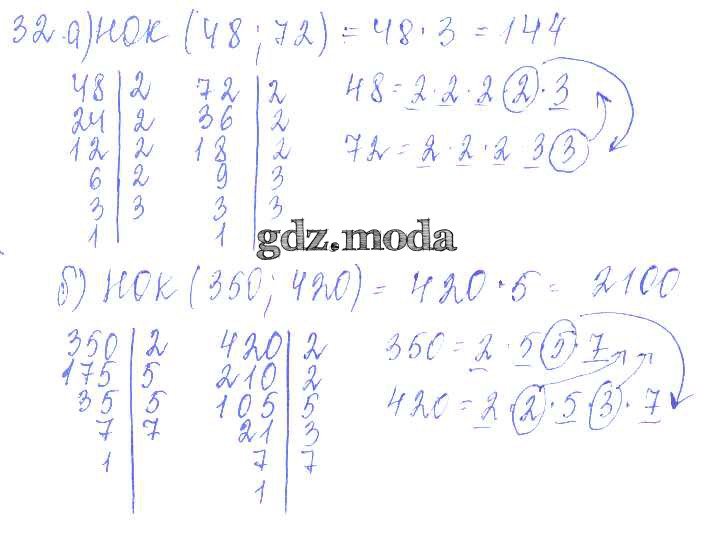 32 а) НОК (48; 72) = 48 · 3 = 144
48 | 2   72 | 2   48 = 2 · 2 · 2 · 2 · 3
24 | 2   36 | 2
12 | 2   18 | 2   72 = 2 · 2 · 2 · 3 · 3
6 | 2   9 | 3
3 | 3   3 | 3
1 |   1 |
gdz.moda
б) НОК (350; 420) = 420 · 5 = 2100
350 | 2   420 | 2   350 = 2 · 5 · 5 · 7
175 | 5   210 | 2
35 | 5   105 | 5   420 = 2 · 2 · 5 · 3 · 7
7 | 7   21 | 3
1 |   7 | 7
1 |